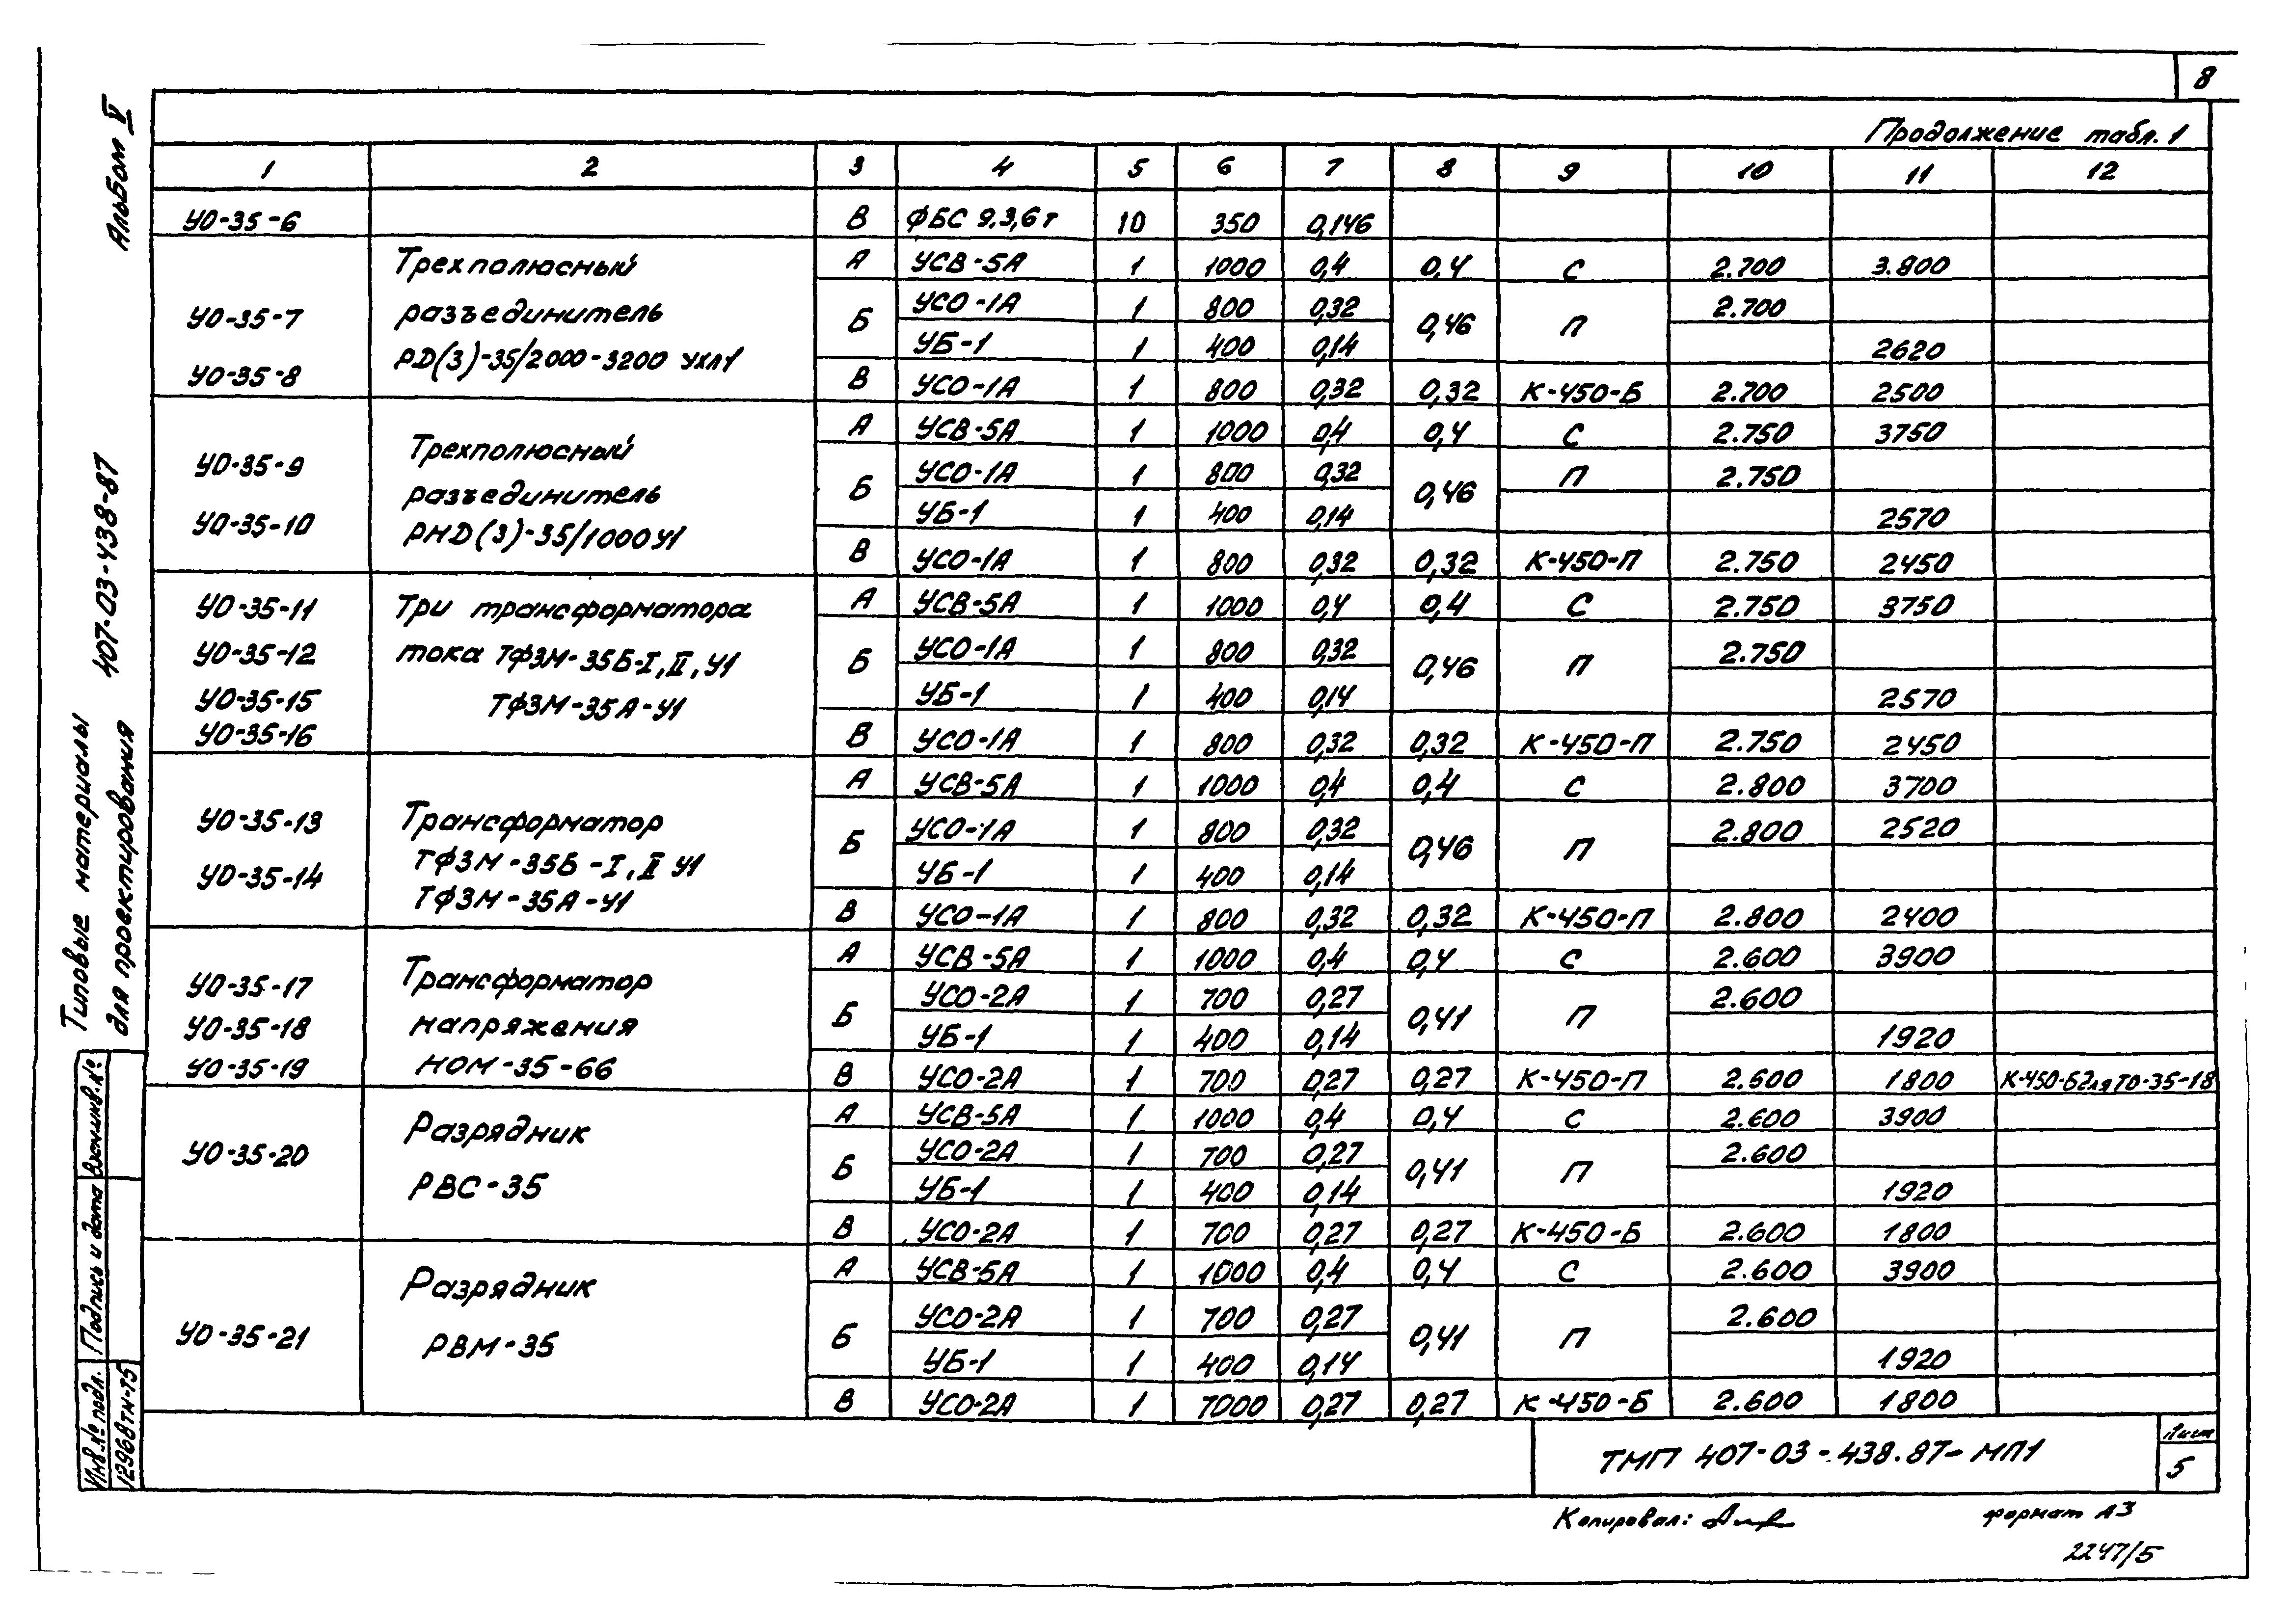 8
Альбом V
Продолжение табл. 1
1 2 3 4 5 6 7 8 9 10 11 12
УО-35-6 В ФБС 9.3,6т 10 350 0,146
Трехполюсный А УСВ-5А 1 1000 0,4 0,4 С 2.700 3.800
УО-35-7 разъединитель Б УСО-1А 1 800 0,32 0,46 П 2.700
УБ-1 1 400 0,14 2620
УО-35-8 РД(З)-35/2000-3200 УХЛ1 В УСО-1А 1 800 0,32 0,32 К-450-Б 2.700 2500
Трехполюсный А УСВ-5А 1 1000 0,4 0,4 С 2.750 3750
УО-35-9 разъединитель Б УСО-1А 1 800 0,32 0,46 П 2.750
УО-35-10 РНД(З)-35/1000У1 УБ-1 1 400 0,14 2570
В УСО-1А 1 800 0,32 0,32 К-450-П 2.750 2450
УО-35-11 Три трансформатора А УСВ-5А 1 1000 0,4 0,4 С 2.750 3750
УО-35-12 тока ТФЗМ-35Б-I, II, У1 Б УСО-1А 1 800 0,32 0,46 П 2.750
УО-35-15 ТФЗМ-35А-У1 УБ-1 1 400 0,14 2570
УО-35-16 В УСО-1А 1 800 0,32 0,32 К-450-П 2.750 2450
А УСВ-5А 1 1000 0,4 0,4 С 2.800 3700
УО-35-13 Трансформатор Б УСО-1А 1 800 0,32 0,46 П 2.800 2520
ТФЗМ-35Б-I, II У1
УО-35-14 УБ-1 1 400 0,14
ТФЗМ-35А-У1 В УСО-1А 1 800 0,32 0,32 К-450-П 2.800 2400
Трансформатор А УСВ-5А 1 1000 0,4 0,4 С 2.600 3900
УО-35-17 Б УСО-2А 1 700 0,27 0,41 П 2.600
УО-35-18 напряжения УБ-1 1 400 0,14 1920
УО-35-19 НОМ-35-66 В УСО-2А 1 700 0,27 0,27 К-450-П 2.600 1800 К-450-Б для ТО-35-18
Разрядник А УСВ-5А 1 1000 0,4 0,4 С 2.600 3900
УО-35-20 Б УСО-2А 1 700 0,27 0,41 П 2.600
РВС-35 УБ-1 1 400 0,14 1920
В УСО-2А 1 700 0,27 0,27 К-450-Б 2.600 1800
Разрядник А УСВ-5А 1 1000 0,4 0,4 С 2.600 3900
УО-35-21 Б УСО-2А 1 700 0,27 0,41 П 2.600
РВМ-35 УБ-1 1 400 0,14 1920
В УСО-2А 1 7000 0,27 0,27 К-450-Б 2.600 1800
Типовые материалы
для проектирования 407-03-438-87
Взам.инв.№
Подпись и дата
Инв.№ подл.
12968тм-т5
ТМП 407-03-438.87-МП1
Лист
5
Копировал:
формат А3
2247/5